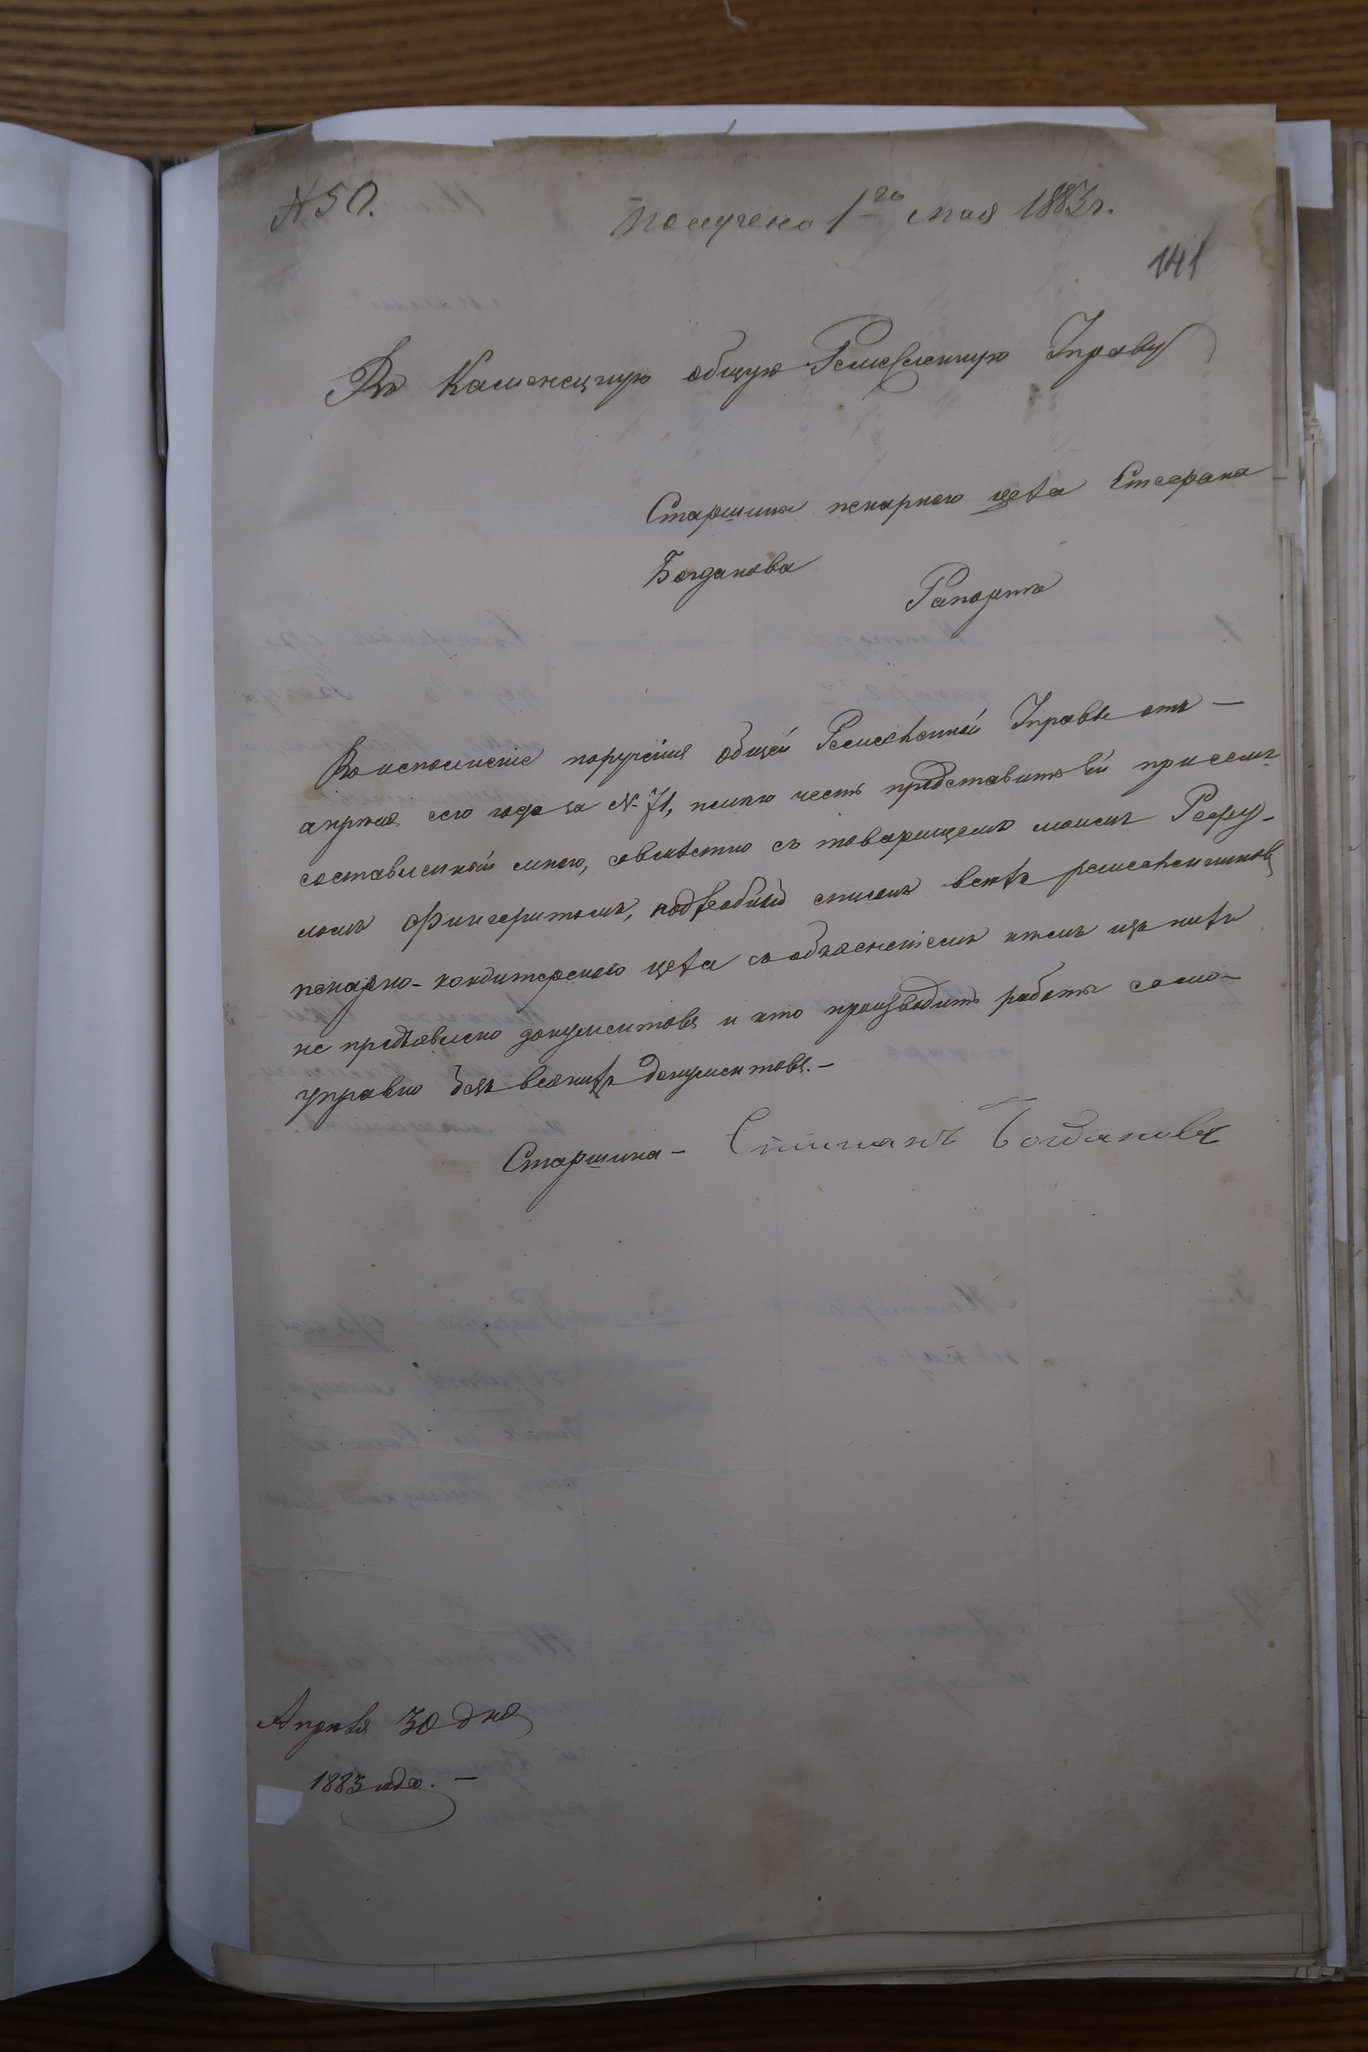 № 50.
получено 1го мая 1883 г.
141
Въ Каменецкую общую Ремесленную Управу
Старшины пекарного цеха Стефана
Богданова
Рапортъ
Во исполненіе порученія общей Ремесленной Управы отъ —
апрѣля сего года за № 71, имѣю честь представить ей при семъ
составленный мною, совмѣстно съ товарищемъ моимъ
подробный списокъ всѣхъ ремесленниковъ
пекарно-кондитерского цеха съ объясненіемъ кѣмъ изъ нихъ
не предъявлено документовъ и кто производитъ работы само-
управно безъ всякихъ документовъ. —
Старшина — Стипанъ Богдановъ
Апрѣля 30 дня
1883 года. —